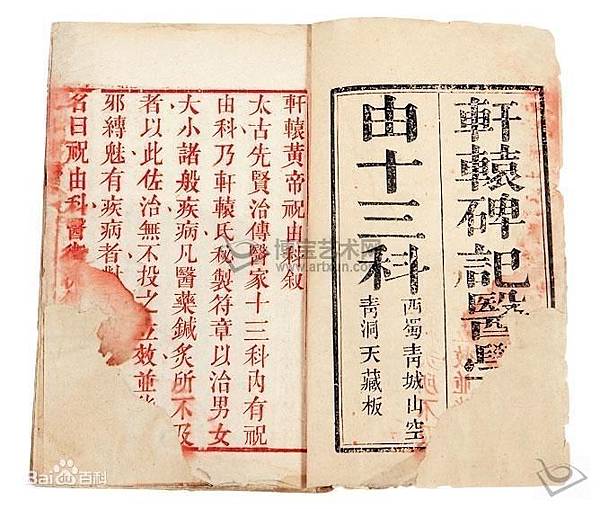 軒轅碑記醫學
由十三科
西蜀青城山空
青洞天藏板
軒轅黃帝祝由科敘
太古先賢治傳醫家十三科內有祝
由科乃軒轅氏秘製符章以治男女
大小諸般疾病凡醫藥鍼灸所不及
者以此佐治無不投之立效並
邪縛魅有疾病者對
名曰祝由科醫
博宝艺术网
Bai百科